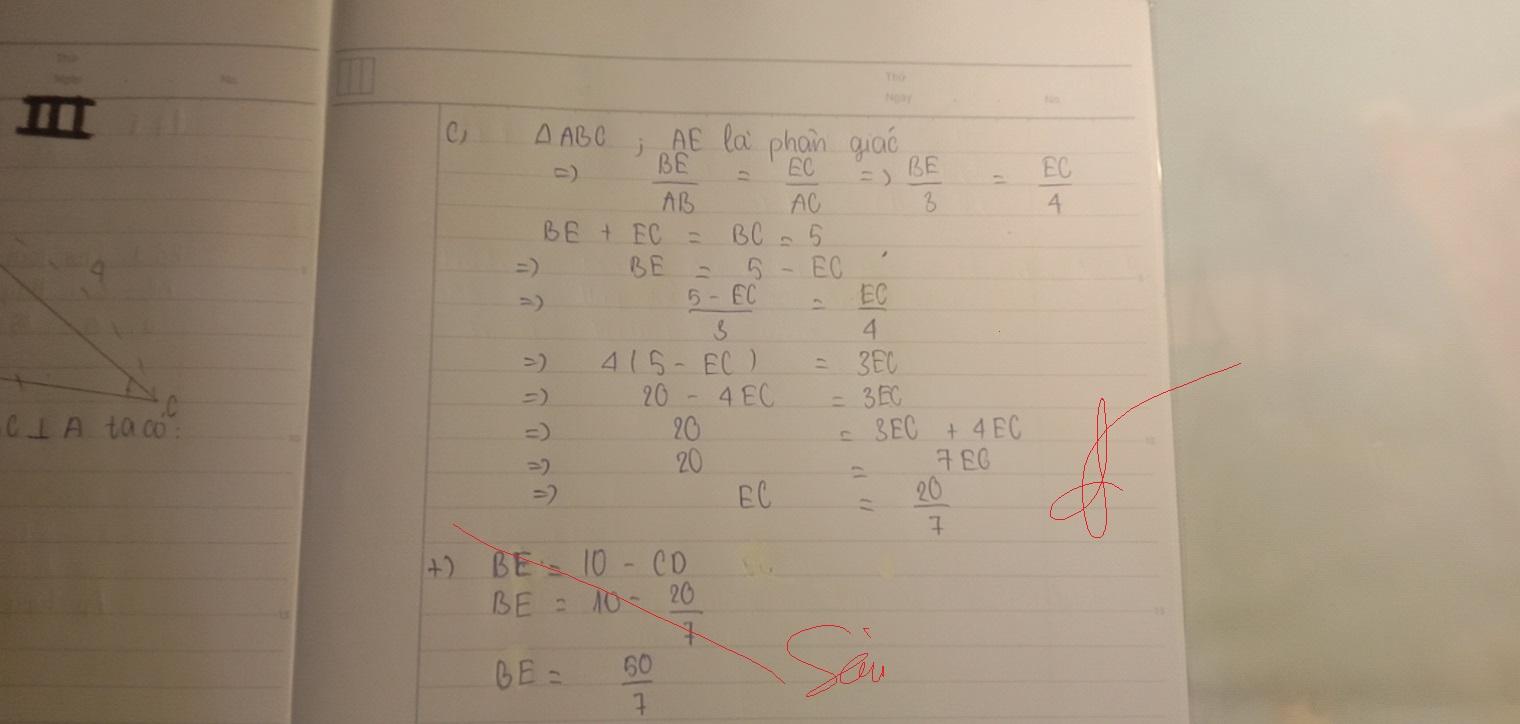 Thứ
Ngày
No.
III
4
C
C ⊥ A ta có:
Thứ
Ngày
No.
C, ΔABC ; AE là phân giác
=) BE/AB = EC/AC =) BE/3 = EC/4
BE + EC = BC = 5
=) BE = 5 - EC
=) (5 - EC)/3 = EC/4
=) 4(5 - EC) = 3EC
=) 20 - 4EC = 3EC
=) 20 = 3EC + 4EC
=) 20 = 7EC
=) EC = 20/7
+) BE = 10 - CD
BE = 10 - 20/7
BE = 50/7